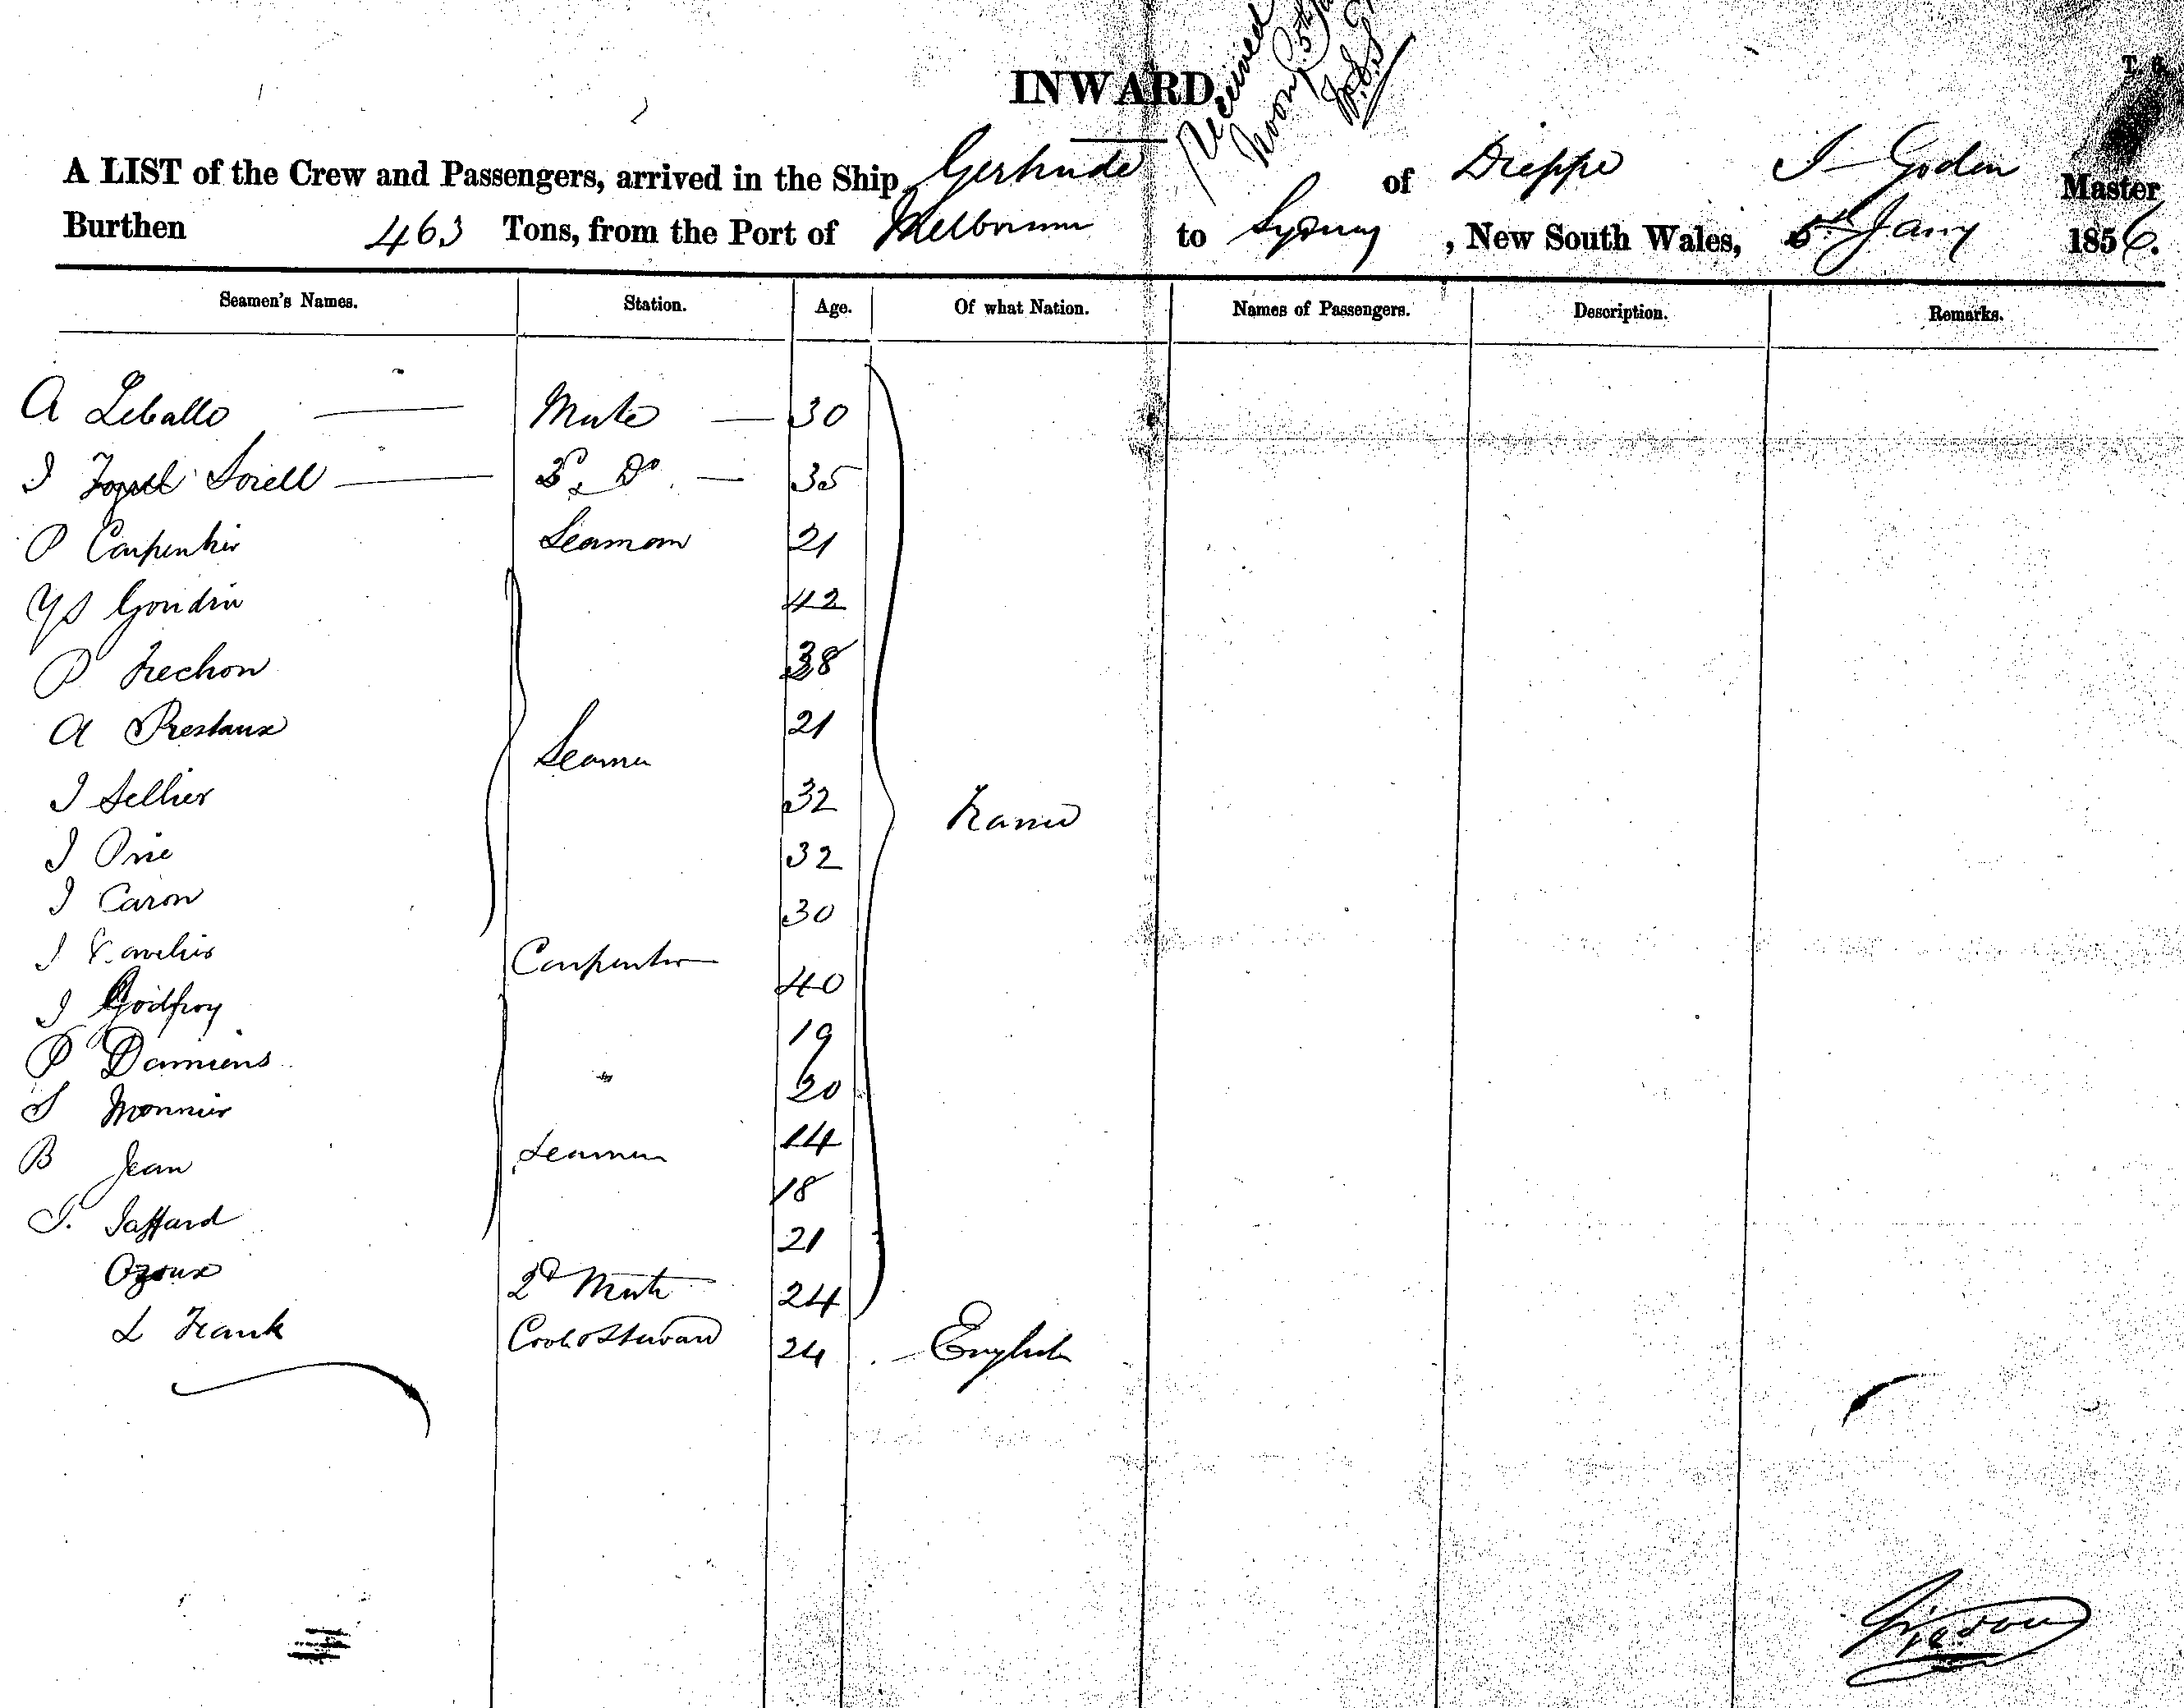 INWARD.
Received
noon 5th
A LIST of the Crew and Passengers, arrived in the Ship Gertrude of Dieppe J Goden Master
Burthen 463 Tons, from the Port of Melbourne to Sydney, New South Wales, 5th Jany 1856.
Seamen's Names. Station. Age. Of what Nation. Names of Passengers. Description. Remarks.
A Leballo Mate 30
J Sorell Do 35
P Carpentier Seaman 21
Gondin 42
P Frechon 38
A Prestaux 21
Seamen
J Sellier 32
France
J Prie 32
J Caron 30
J Carpenter 40
J Godfroy 19
P Damiens 20
S Monnier 14
Seamen
B Jean 18
J. Jaffard 21
Ozoux 2d Mate 24
L Frank Cook & Steward 24 English